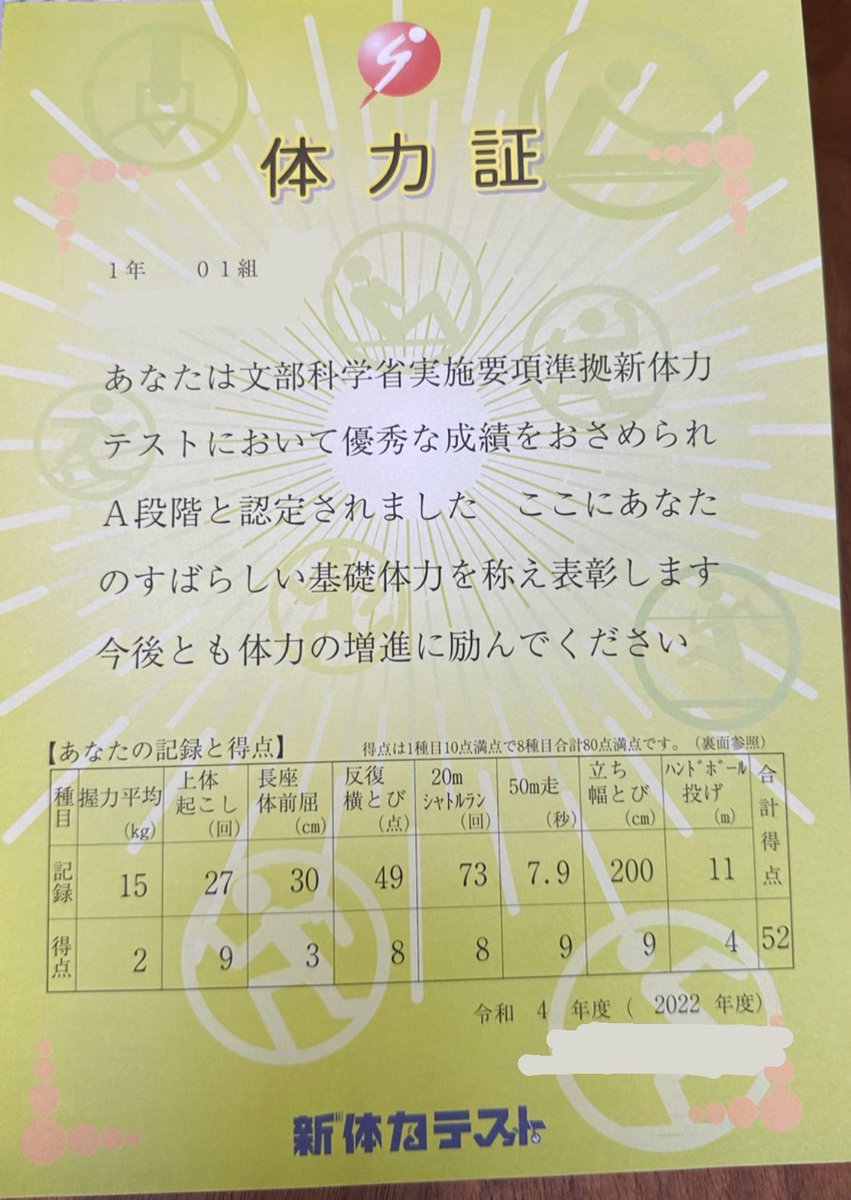 体力証
1年　01組
あなたは文部科学省実施要項準拠新体力
テストにおいて優秀な成績をおさめられ
A段階と認定されました　ここにあなた
のすばらしい基礎体力を称え表彰します
今後とも体力の増進に励んでください
【あなたの記録と得点】　得点は1種目10点満点で8種目合計80点満点です。（裏面参照）
種目　握力平均(kg)　上体起こし(回)　長座体前屈(cm)　反復横とび(点)　20mシャトルラン(回)　50m走(秒)　立ち幅とび(cm)　ハンドボール投げ(m)　合計得点
記録　15　27　30　49　73　7.9　200　11
得点　2　9　3　8　8　9　9　4　52
令和　4　年度（　2022　年度）
新体力テスト